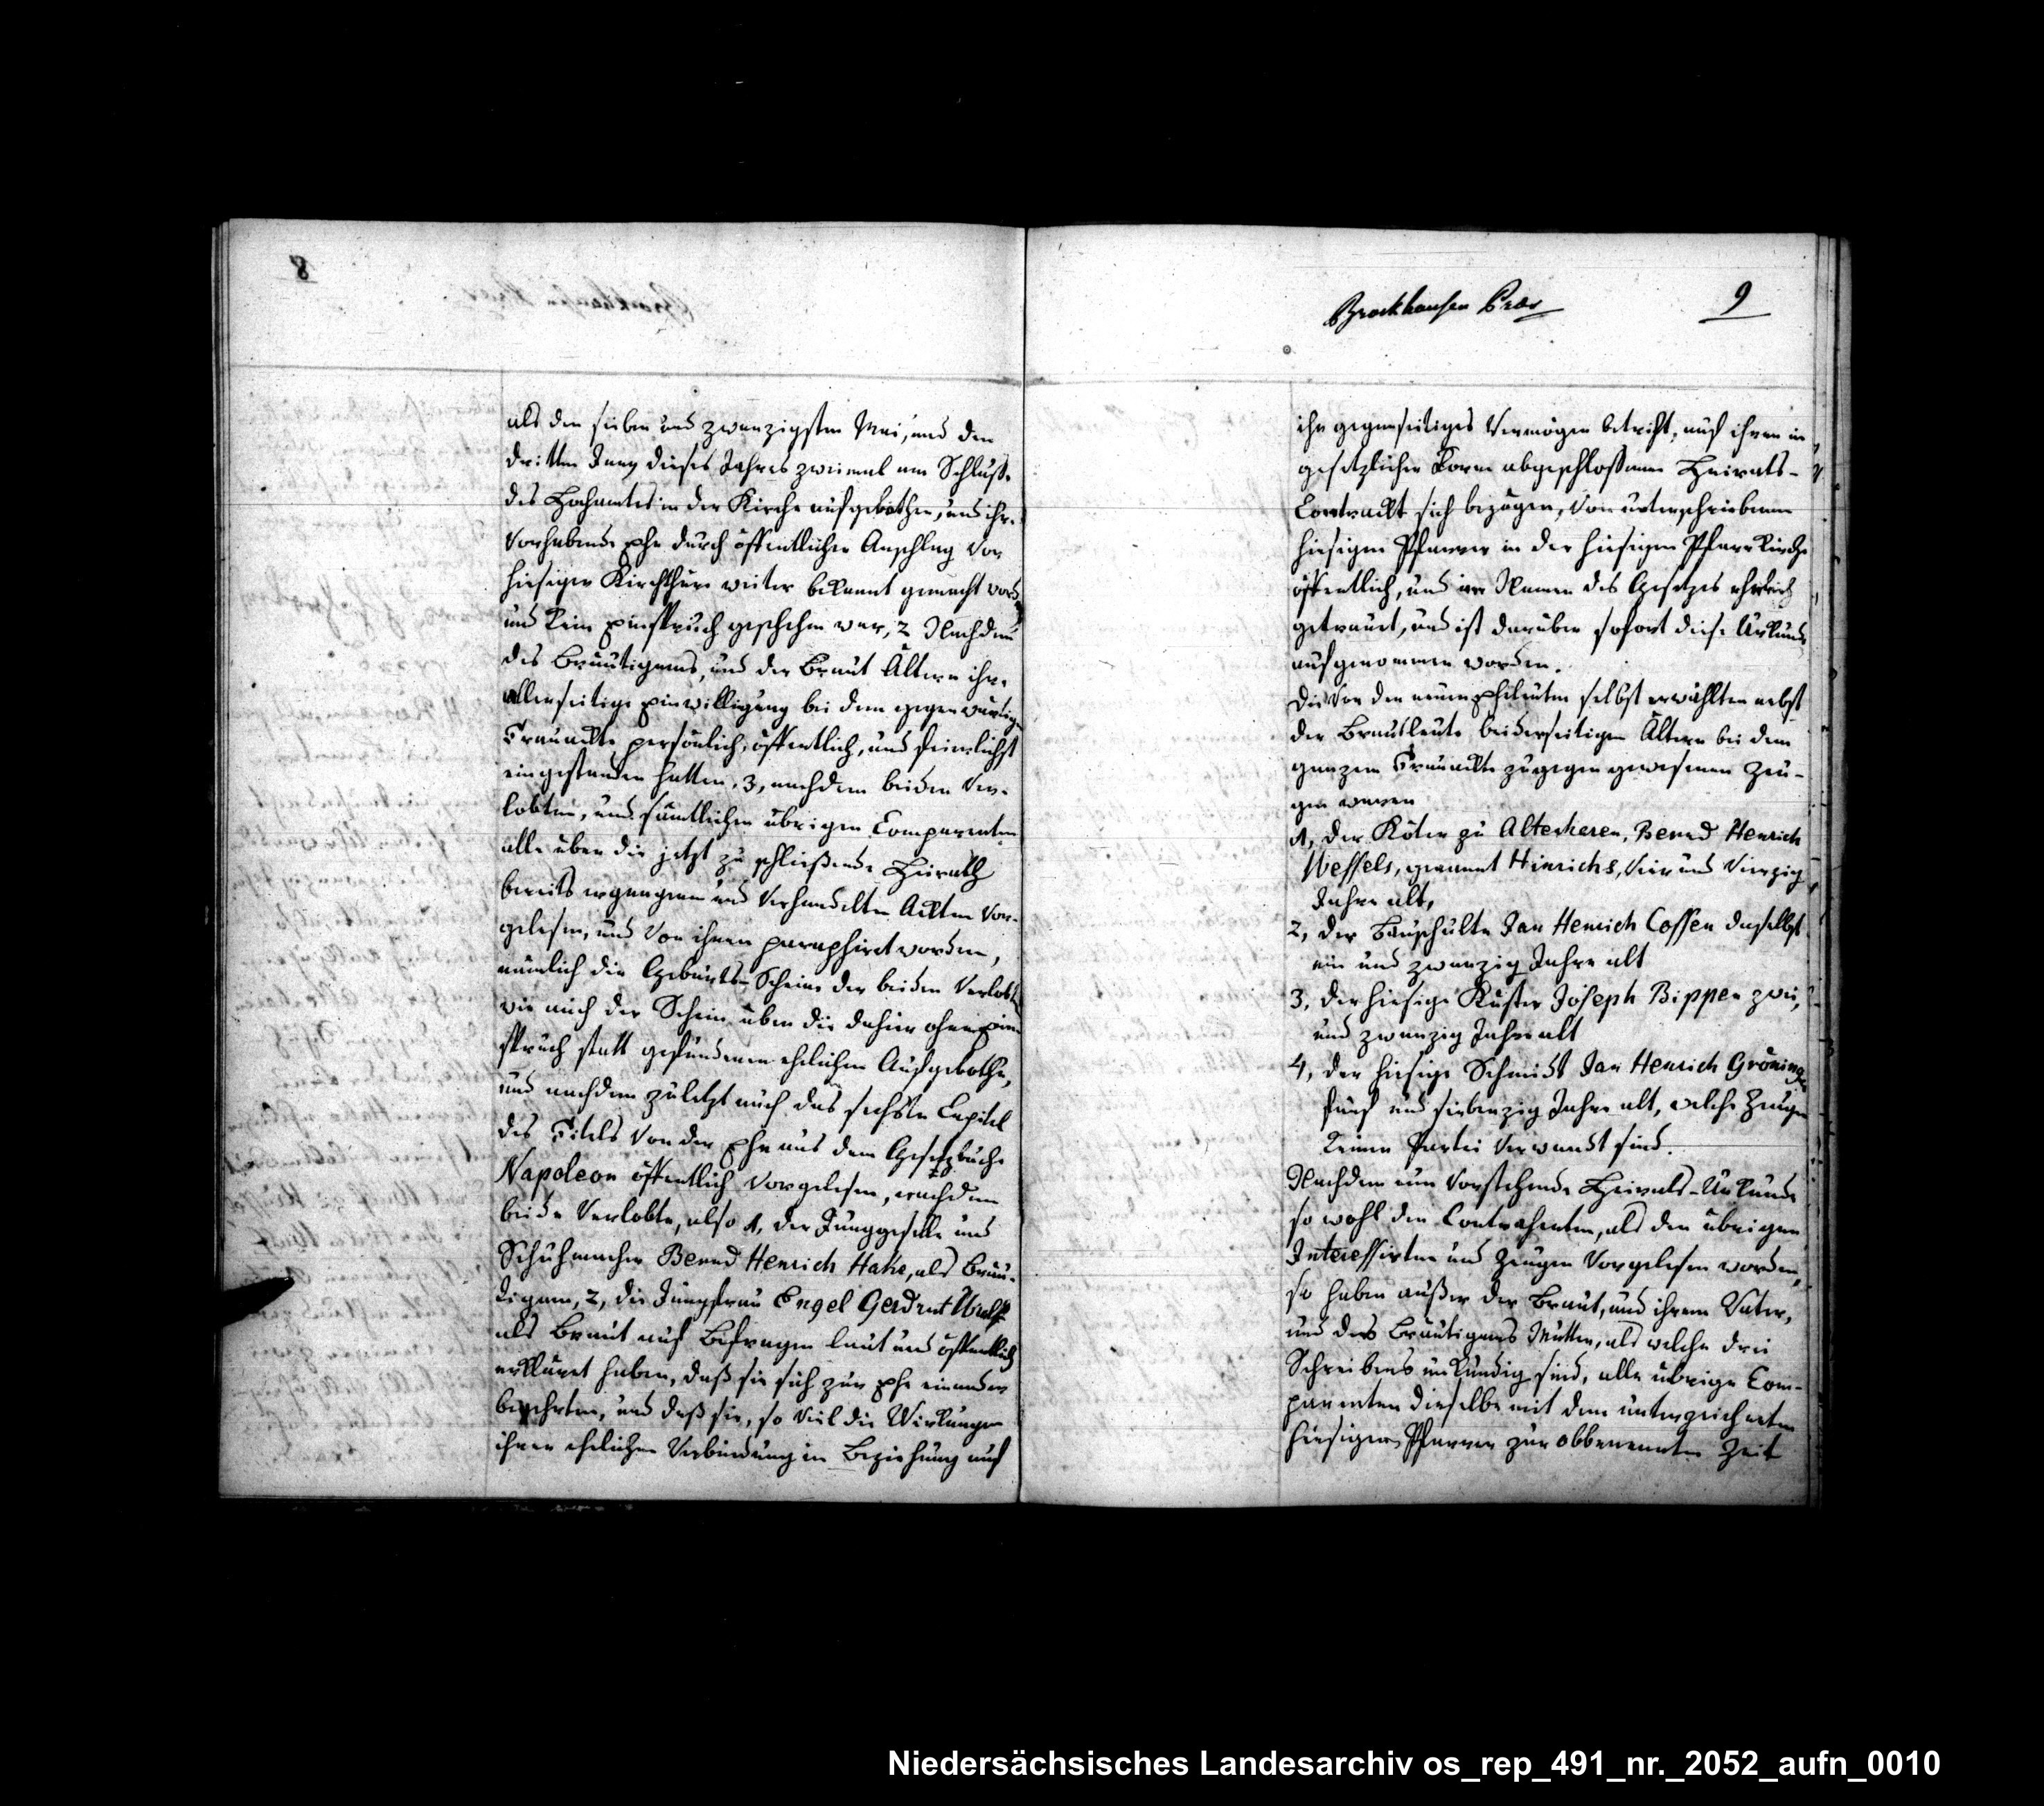 8
als den sieben und zwanzigsten Mai, und den
dritten Juny dieses Jahres zweimal am Schluße
des Hochamtes in der Kirche aufgebothen, und ihre
vorhabende Ehe durch öffentlichen Anschlag vor
hiesiger Kirchthüre weiter bekannt gemacht word
und kein Einspruch geschehen war, 2 Nachdem
des Bräutigams, und der Braut Ältern ihre
allerseitige Einwilligung bei dem gegenwärtigen
Trauackte persönlich, öffentlich, und feierlichst
eingestanden hatten, 3, nachdem beiden Ver-
lobten, und sämtlichen übrigen Comparenten
alle über die jetzt zu schließende Heirath
bereits ergangenen und verhandelten Ackten vor-
gelesen, und von ihnen paraphirt worden,
nämlich die Geburts-Scheine der beiden Verlobten
wie auch der Schein über die dahier ohne Ein
spruch statt gefundenen ehelichen Aufgebothe,
und nachdem zuletzt auch das sechste Capitel
des Titels von der Ehe aus dem Gesetzbuche
Napoleon öffentlich vorgelesen, nachdem
beide Verlobte, also 1, der Junggeselle und
Schuhmacher Bernd Henrich Hake, als Bräu-
tigam, 2, die Jungfrau Engel Gerdrut Wulf
als Braut auf Befragen laut und öffentlich
erkläret haben, daß sie sich zur Ehe einander
begehrten, und daß sie, so viel die Wirkungen
ihrer ehelichen Verbindung in Beziehung auf
Brockhausen Præs
9
ihr gegenseitiges Vermögen betrift, auf ihren in
gesetzlicher Form abgeschloßenen Heirats-
Contrackt sich bezögen, von unterschriebenen
hiesigen Pfarrer in der hiesigen Pfarrkirche
öffentlich, und im Namen des Gesetzes ehelich
getrauet, und ist darüber sofort diese Urkunde
aufgenommen worden.
Die von den neuen Eheleuten selbst erwählten nebst
der Brautleute beiderseitigen Ältern bei dem
ganzen Trauackte zugegen gewesenen Zeu-
gen waren
1, der Köter zu Alteheren, Bernd Henrich
Wessels, genannt Hinrichs, vier und vierzig
Jahre alt,
2, der Bauschulte Jan Henrich Cossen daselbst
ein und zwanzig Jahre alt
3, der hiesige Küster Joseph Bippen zwei,
und zwanzig Jahre alt
4, der hiesige Schmidt Jan Henrich Gröninger
fünf und siebenzig Jahre alt, welche Zeugen
keiner Partei verwandt sind.
Nachdem nun vorstehende Heirats-Urkunde
so wohl den Contrahenten, als den übrigen
Interessirten und Zeugen vorgelesen worden,
so haben außer der Braut, und ihrem Vater,
und des Bräutigams Mutter, als welche drei
Schreibens unkundig sind, alle übrige Com-
parenten dieselbe mit dem unterzeichneten
hiesigen Pfarrer zur obbenennten Zeit
Niedersächsisches Landesarchiv os_rep_491_nr._2052_aufn_0010